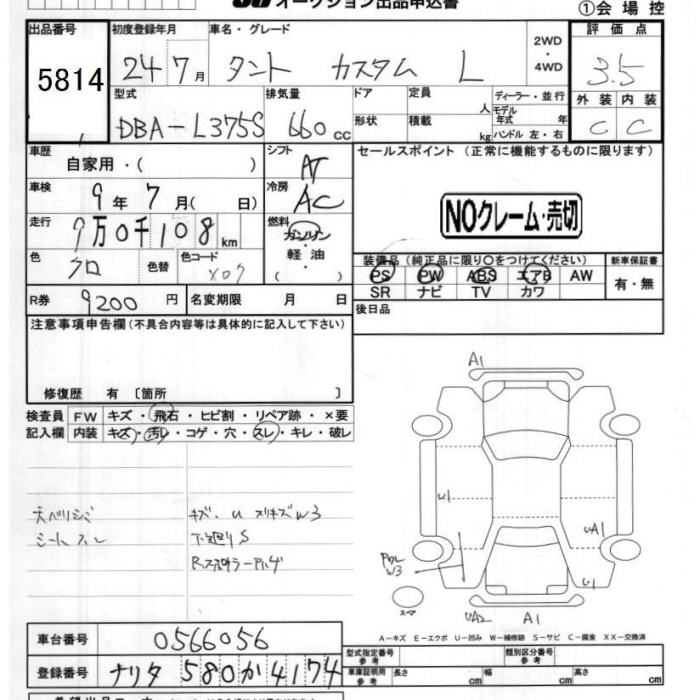 オークション出品申込書
①会場控
出品番号 初度登録年月 車名・グレード 2WD ・ 4WD 評価点
5814 24 7月 タント カスタム L 3.5
型式 排気量 ドア 定員 人 ディーラー・並行 外装 内装
DBA-L375S 660cc 形状 積載 kg モデル年式 年式 ハンドル 左・右 C C
車歴 自家用・( ) シフト AT セールスポイント (正常に機能するものに限ります)
車検 9年7月( 日) 冷房 AC NOクレーム・売切
走行 9万0千108km 燃料 ガソリン・軽油・( )
色 クロ 色替 色コード X07
装備品(純正品に限り○をつけてください) 新車保証書
PS PW ABS エアB AW 有・無
SR ナビ TV カワ
R券 9200円 名変期限 月 日 後日品
注意事項申告欄(不具合内容等は具体的に記入して下さい)
修復歴 有 〔箇所 〕
検査員 FW キズ・飛石・ヒビ割・リペア跡・×要
記入欄 内装 キズ・汚レ・コゲ・穴・スレ・キレ・破レ
天ベリシミ キズ、U スリキズW3
シートスレ 下廻りS
A1
U1
UA1
W3
U1
スペア
UA2 A1
A-キズ E-エクボ U-凹み W-補修跡 S-サビ C-腐食 XX-交換済
車台番号 0566056
登録番号 ナリタ 580 か 4174
型式指定番号 参考 類別区分番号 参考
車庫証明用 参考 長さ cm 幅 cm 高さ cm